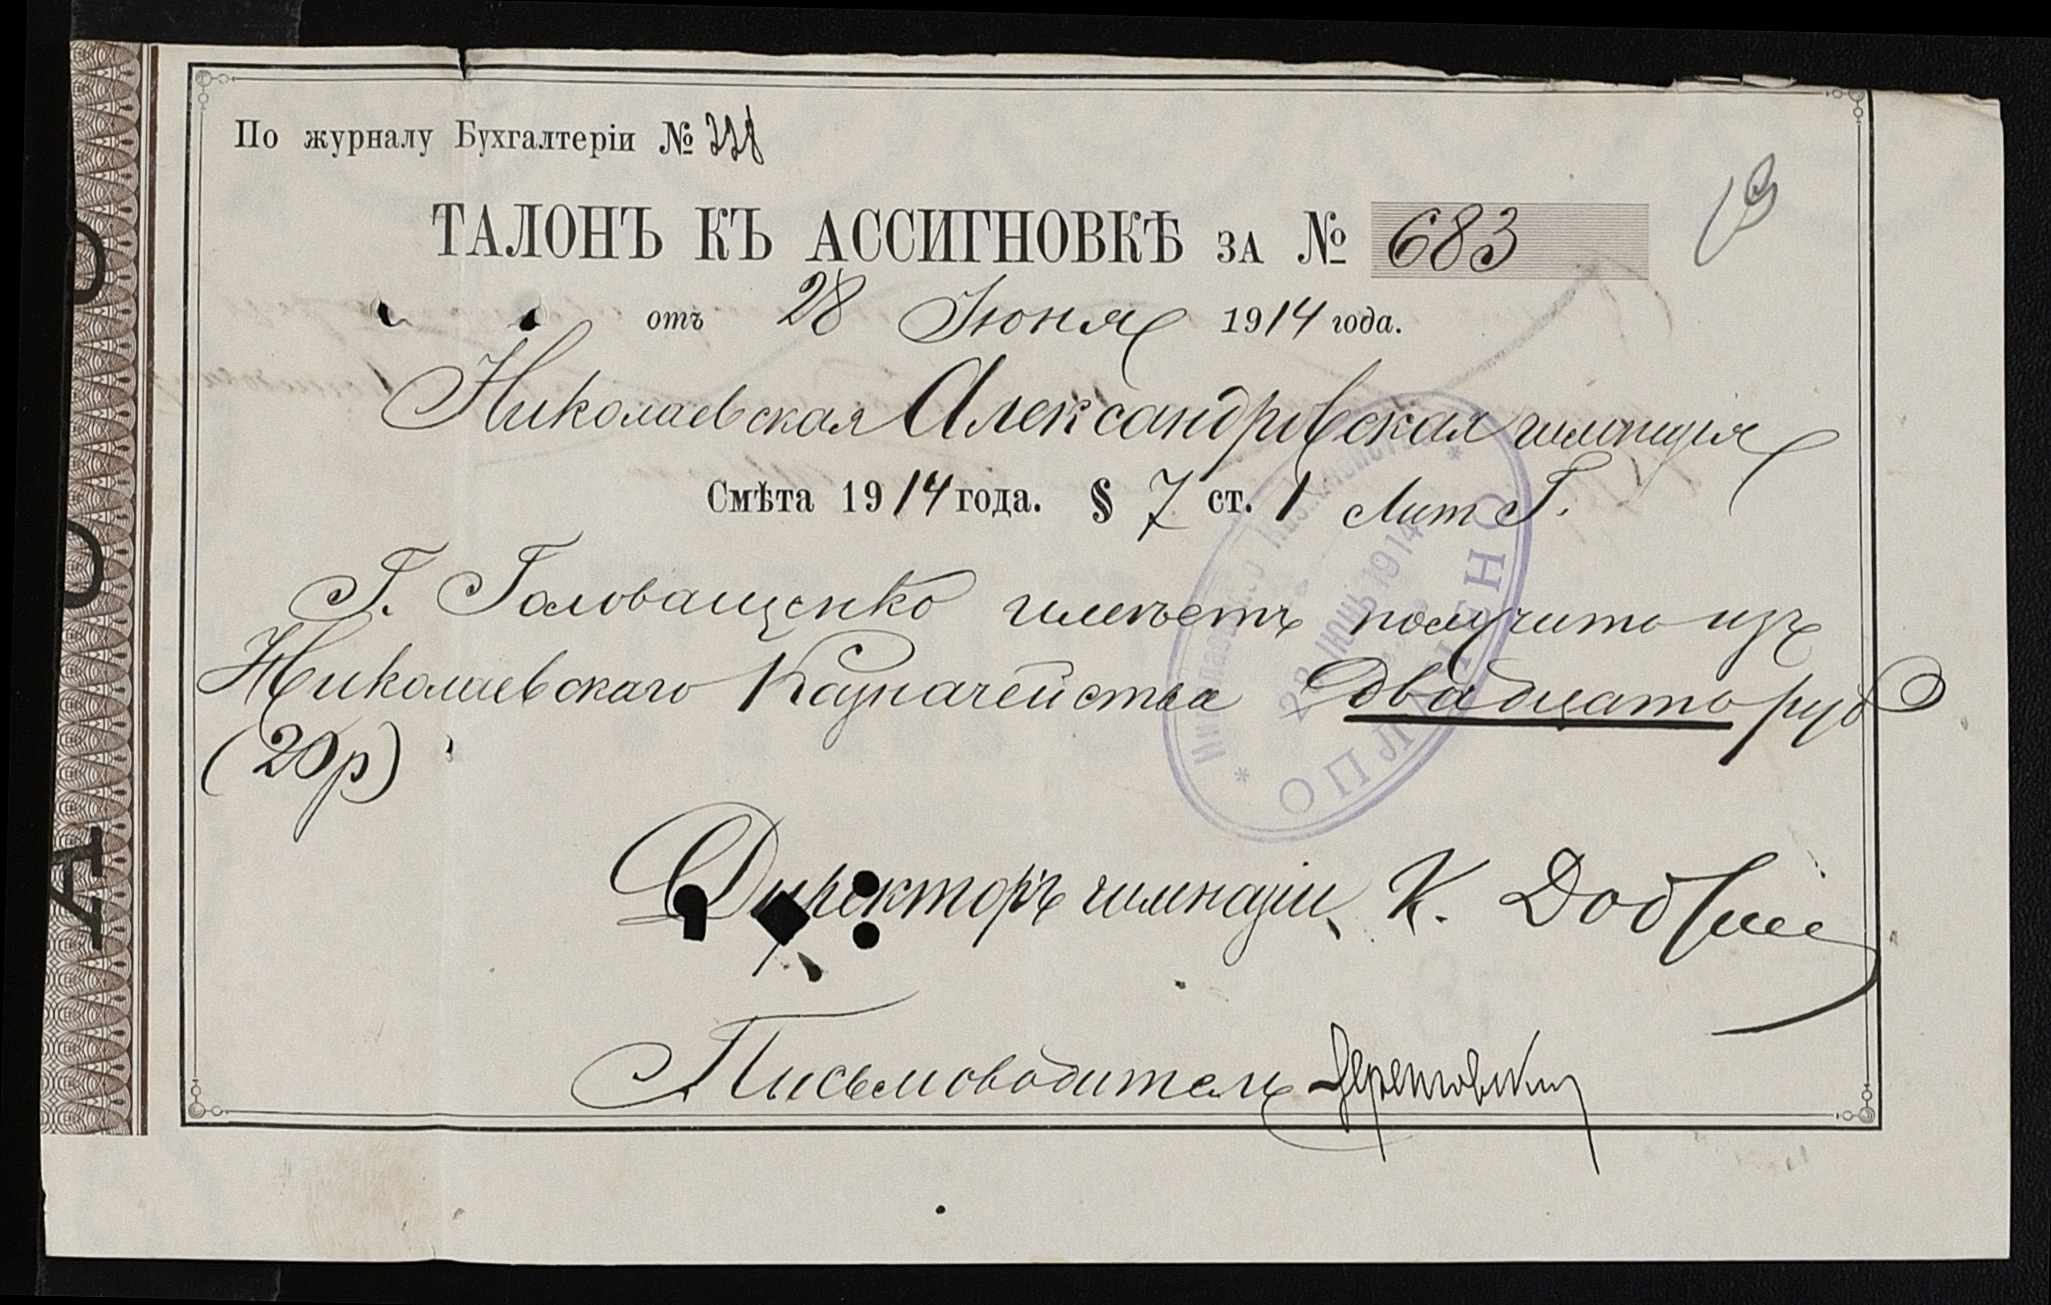 По журналу Бухгалтеріи №
ТАЛОНЪ КЪ АССИГНОВКѢ ЗА № 683
19
отъ 28 Іюня 1914 года.
Николаевская Александровская гимназія
Смѣта 1914 года. § 7 ст. 1 Лит Г.
Г. Головащенко имѣетъ получить изъ
Николаевскаго Казначейства двадцать руб
(20 р)
Директоръ гимназіи К.
Письмоводитель
ОПЛАЧЕНО
1914